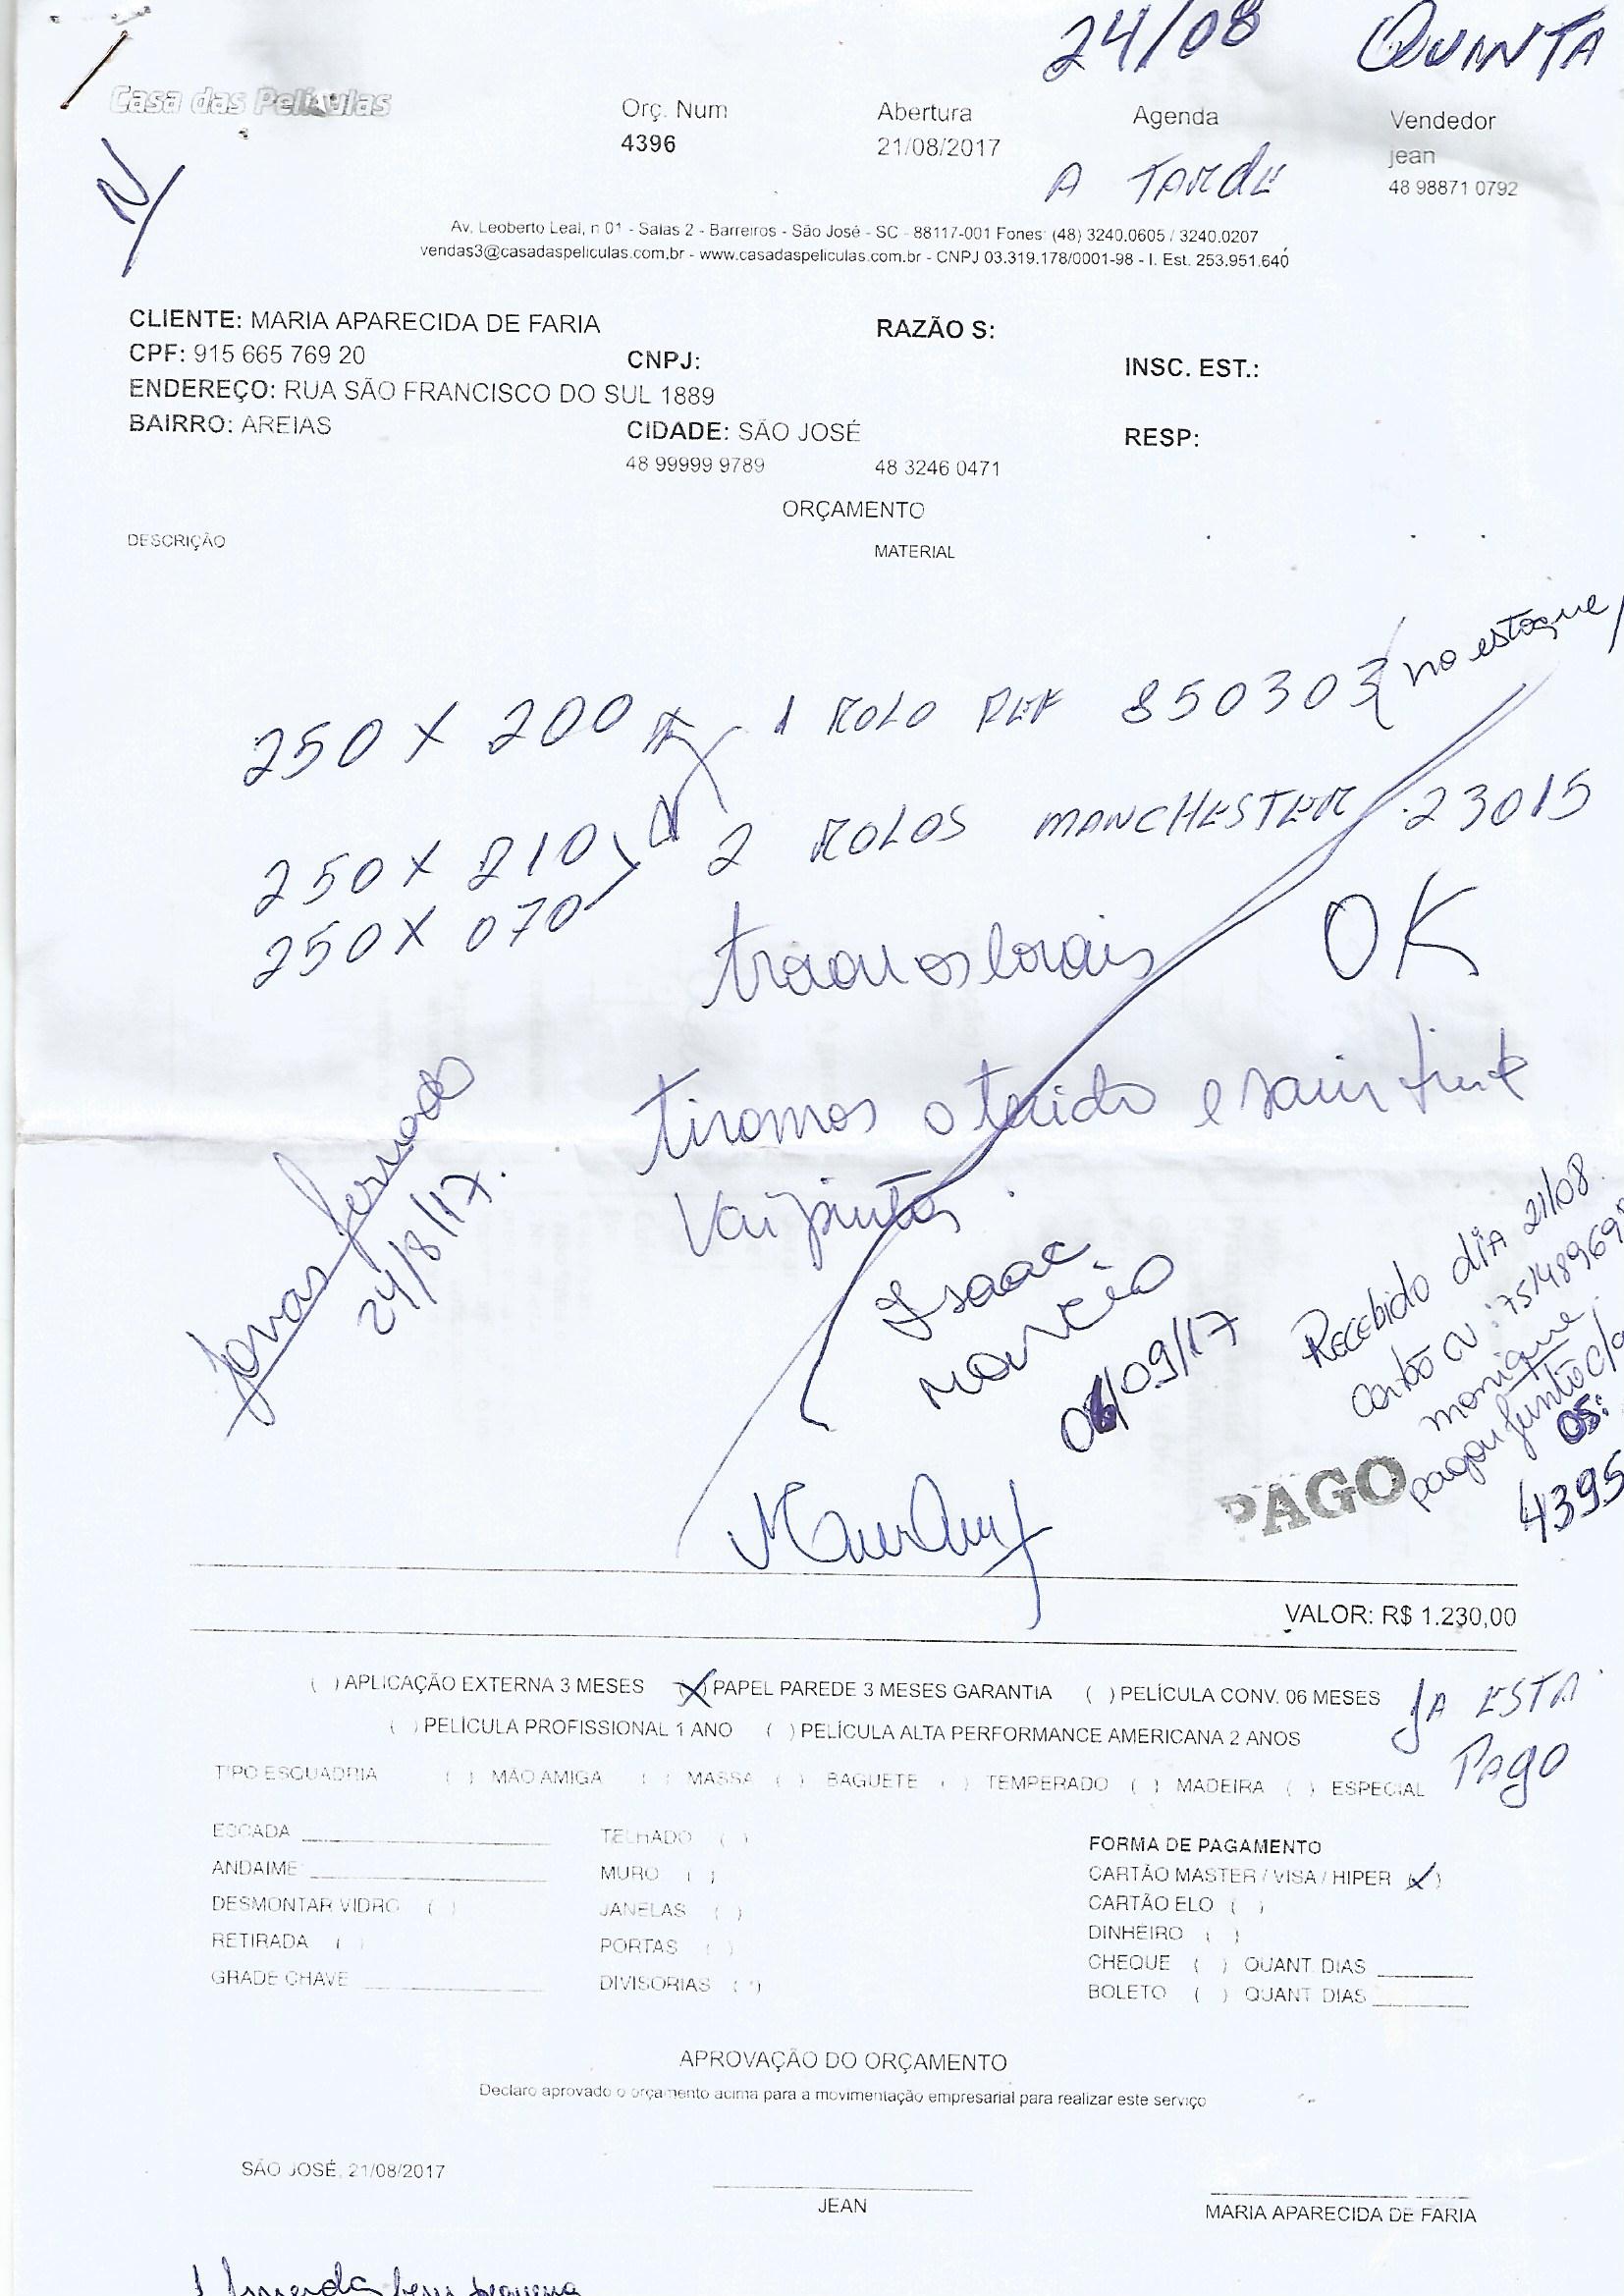 24/08 QUINTA
Casa das Películas
Orç. Num Abertura Agenda Vendedor
4396 21/08/2017 A TARDE jean
48 98871 0792
N/
Av. Leoberto Leal, n 01 - Salas 2 - Barreiros - São José - SC - 88117-001 Fones: (48) 3240.0605 / 3240.0207
vendas3@casadaspeliculas.com.br - www.casadaspeliculas.com.br - CNPJ 03.319.178/0001-98 - I. Est. 253.951.640
CLIENTE: MARIA APARECIDA DE FARIA RAZÃO S:
CPF: 915 665 769 20 CNPJ: INSC. EST.:
ENDEREÇO: RUA SÃO FRANCISCO DO SUL 1889
BAIRRO: AREIAS CIDADE: SÃO JOSÉ RESP:
48 99999 9789 48 3246 0471
ORÇAMENTO
DESCRIÇÃO MATERIAL
250 X 200 1 ROLO REF 850303 no estoque
250 X 210 2 ROLOS MANCHESTER 23015
250 X 070
os locais OK
tiramos o tecido e saiu
Vai
Jonas Fernado
24/8/17.
Isaac
Marcão
09/17
Recebido dia 21/08
cartão CV: 75148969
monique
pagou junto c/a
OS:
4395
PAGO
VALOR: R$ 1.230,00
( ) APLICAÇÃO EXTERNA 3 MESES (X) PAPEL PAREDE 3 MESES GARANTIA ( ) PELÍCULA CONV. 06 MESES
( ) PELÍCULA PROFISSIONAL 1 ANO ( ) PELÍCULA ALTA PERFORMANCE AMERICANA 2 ANOS
JA ESTA
PAGO
TIPO ESQUADRIA ( ) MÃO AMIGA ( ) MASSA ( ) BAGUETE ( ) TEMPERADO ( ) MADEIRA ( ) ESPECIAL
ESCADA TELHADO ( ) FORMA DE PAGAMENTO
ANDAIME: MURO ( ) CARTÃO MASTER / VISA / HIPER (✓)
DESMONTAR VIDRO ( ) JANELAS ( ) CARTÃO ELO ( )
RETIRADA ( ) PORTAS ( ) DINHEIRO ( )
GRADE CHAVE DIVISORIAS ( ) CHEQUE ( ) QUANT DIAS
BOLETO ( ) QUANT DIAS
APROVAÇÃO DO ORÇAMENTO
Declaro aprovado o orçamento acima para a movimentação empresarial para realizar este serviço
SÃO JOSÉ, 21/08/2017
JEAN MARIA APARECIDA DE FARIA
bem pequena